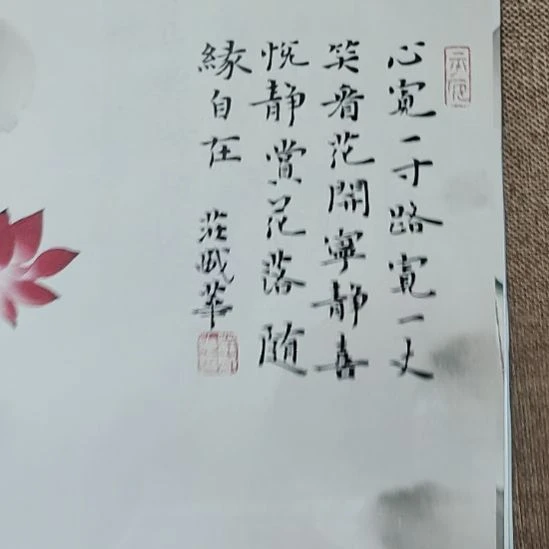 心寬一寸路寬一丈
笑看花開寧靜喜
悅靜賞花落随
緣自在
莊